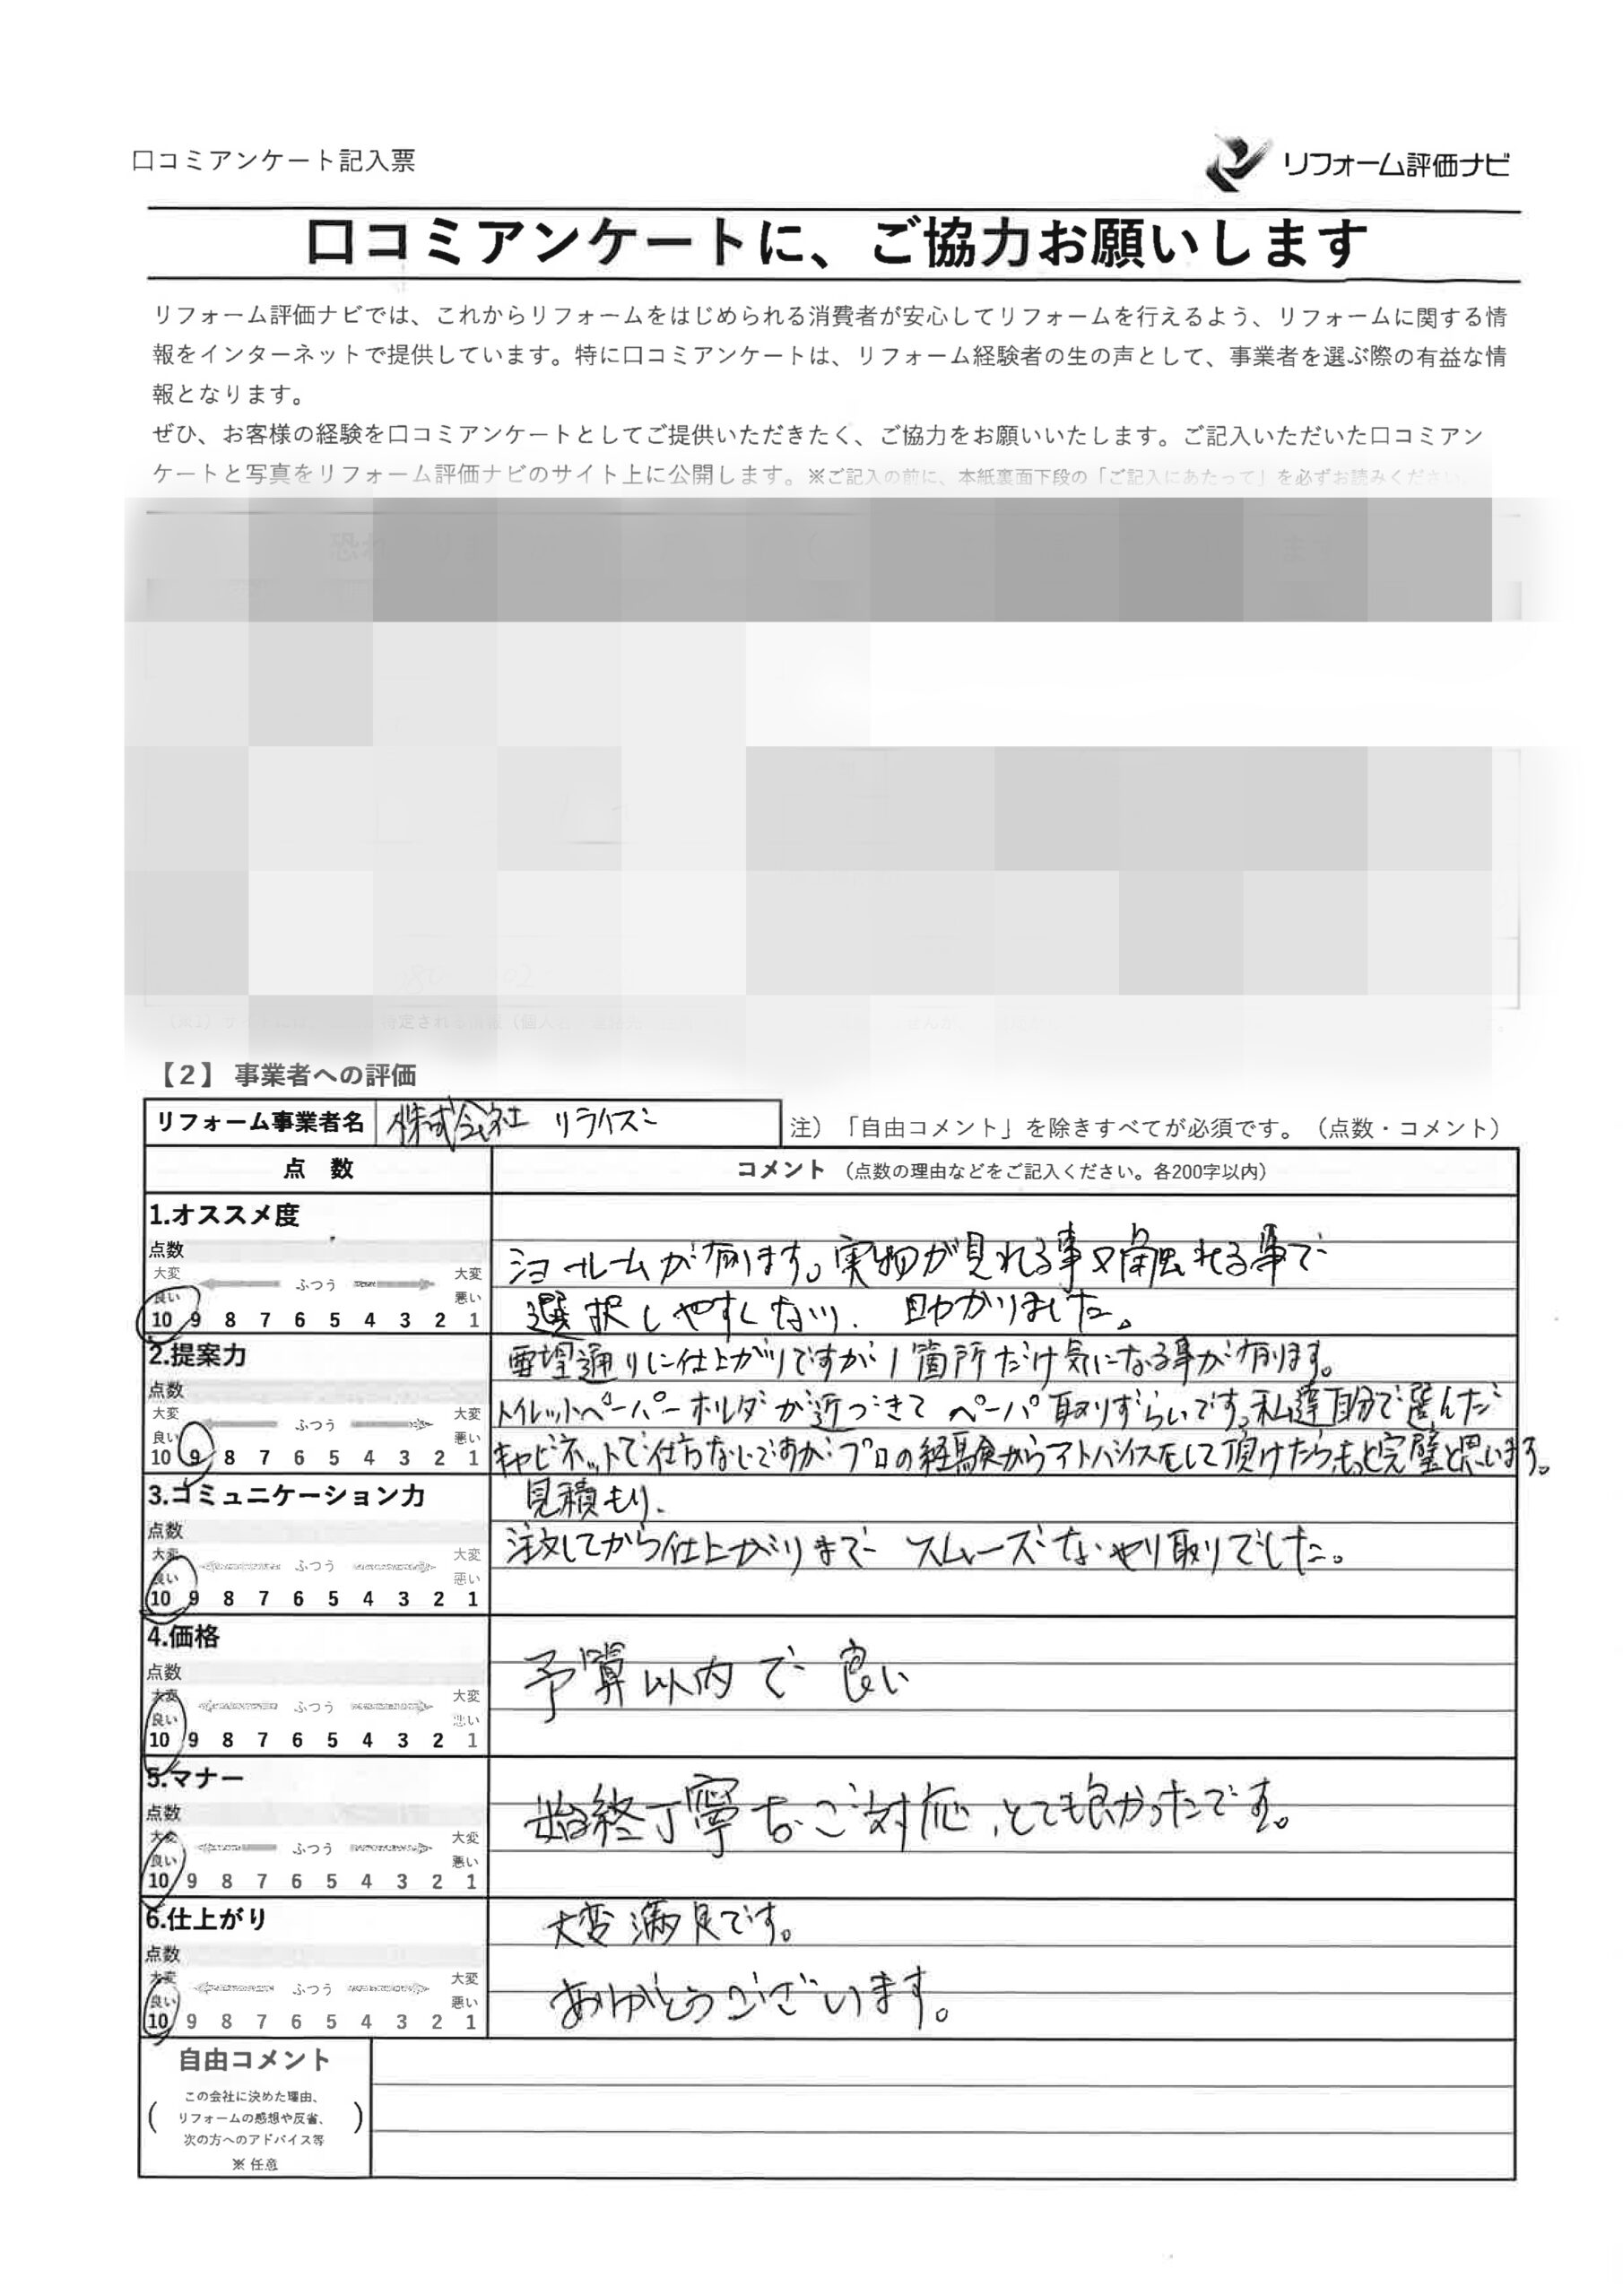 口コミアンケート記入票
リフォーム評価ナビ
口コミアンケートに、ご協力お願いします
リフォーム評価ナビでは、これからリフォームをはじめられる消費者が安心してリフォームを行えるよう、リフォームに関する情
報をインターネットで提供しています。特に口コミアンケートは、リフォーム経験者の生の声として、事業者を選ぶ際の有益な情
報となります。
ぜひ、お客様の経験を口コミアンケートとしてご提供いただきたく、ご協力をお願いいたします。ご記入いただいた口コミアン
ケートと写真をリフォーム評価ナビのサイト上に公開します。※ご記入の前に、本紙裏面下段の「ご記入にあたって」を必ずお読みください。
【2】 事業者への評価
リフォーム事業者名 株式会社 リライズ
注）「自由コメント」を除きすべてが必須です。（点数・コメント）
点 数
コメント（点数の理由などをご記入ください。各200字以内）
1.オススメ度
点数
大変 ふつう 大変
良い 悪い
10 9 8 7 6 5 4 3 2 1
ショールームが有ります。実物が見れる事又触れる事で
選択しやすくなり、助かりました。
2.提案力
点数
大変 ふつう 大変
良い 悪い
10 9 8 7 6 5 4 3 2 1
要望通りに仕上がりですが1箇所だけ気になる事が有ります。
トイレットペーパーホルダが近づきて ペーパ取りずらいです。私達自分で選んだ
キャビネットで仕方ないですが、プロの経験からアトバイスをして頂けたらもっと完璧と思います。
3.コミュニケーション力
点数
大変 ふつう 大変
良い 悪い
10 9 8 7 6 5 4 3 2 1
見積もり、
注文してから仕上がりまで スムーズなやり取りでした。
4.価格
点数
大変 ふつう 大変
良い 悪い
10 9 8 7 6 5 4 3 2 1
予算以内で 良い
5.マナー
点数
大変 ふつう 大変
良い 悪い
10 9 8 7 6 5 4 3 2 1
始終丁寧なご対応、とても良かったです。
6.仕上がり
点数
大変 ふつう 大変
良い 悪い
10 9 8 7 6 5 4 3 2 1
大変満足です。
ありがとうございます。
自由コメント
（この会社に決めた理由、
リフォームの感想や反省、
次の方へのアドバイス等）
※任意